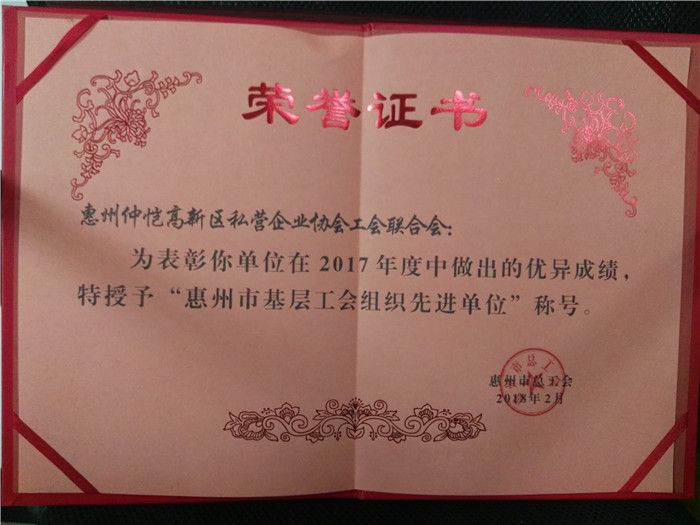 荣誉证书
惠州仲恺高新区私营企业协会工会联合会：
为表彰你单位在 2017 年度中做出的优异成绩，
特授予“惠州市基层工会组织先进单位”称号。
惠州市总工会
2018年2月